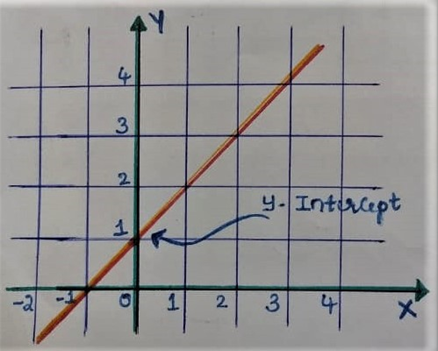 Y
4
3
2
y- Intercept
1
-2 -1 0 1 2 3 4 X